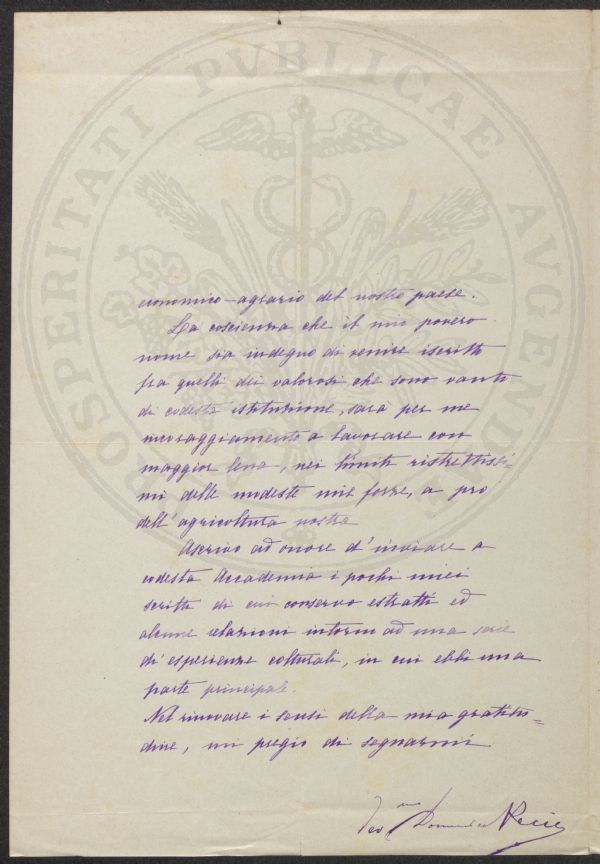 PROSPERITATI PVBLICAE AVGENDAE
economico-agrario del nostro paese.
La coscienza che il mio povero
nome sia indegno di venire iscritto
fra quelli dei valorosi che sono vanto
di codesta istituzione, sarà per me
incoraggiamento a lavorare con
maggior lena, nei limiti ristrettissi=
mi delle modeste mie forze, a pro
dell'agricoltura nostra
Ascrivo ad onore d'inviare a
codesta Accademia i pochi miei
scritti di cui conservo estratti ed
alcune relazioni intorno ad una serie
di esperienze colturali, in cui ebbi una
parte principale.
Nel rinnovare i sensi della mia gratitu=
dine, mi pregio di segnarmi
Dev.mo Domenico